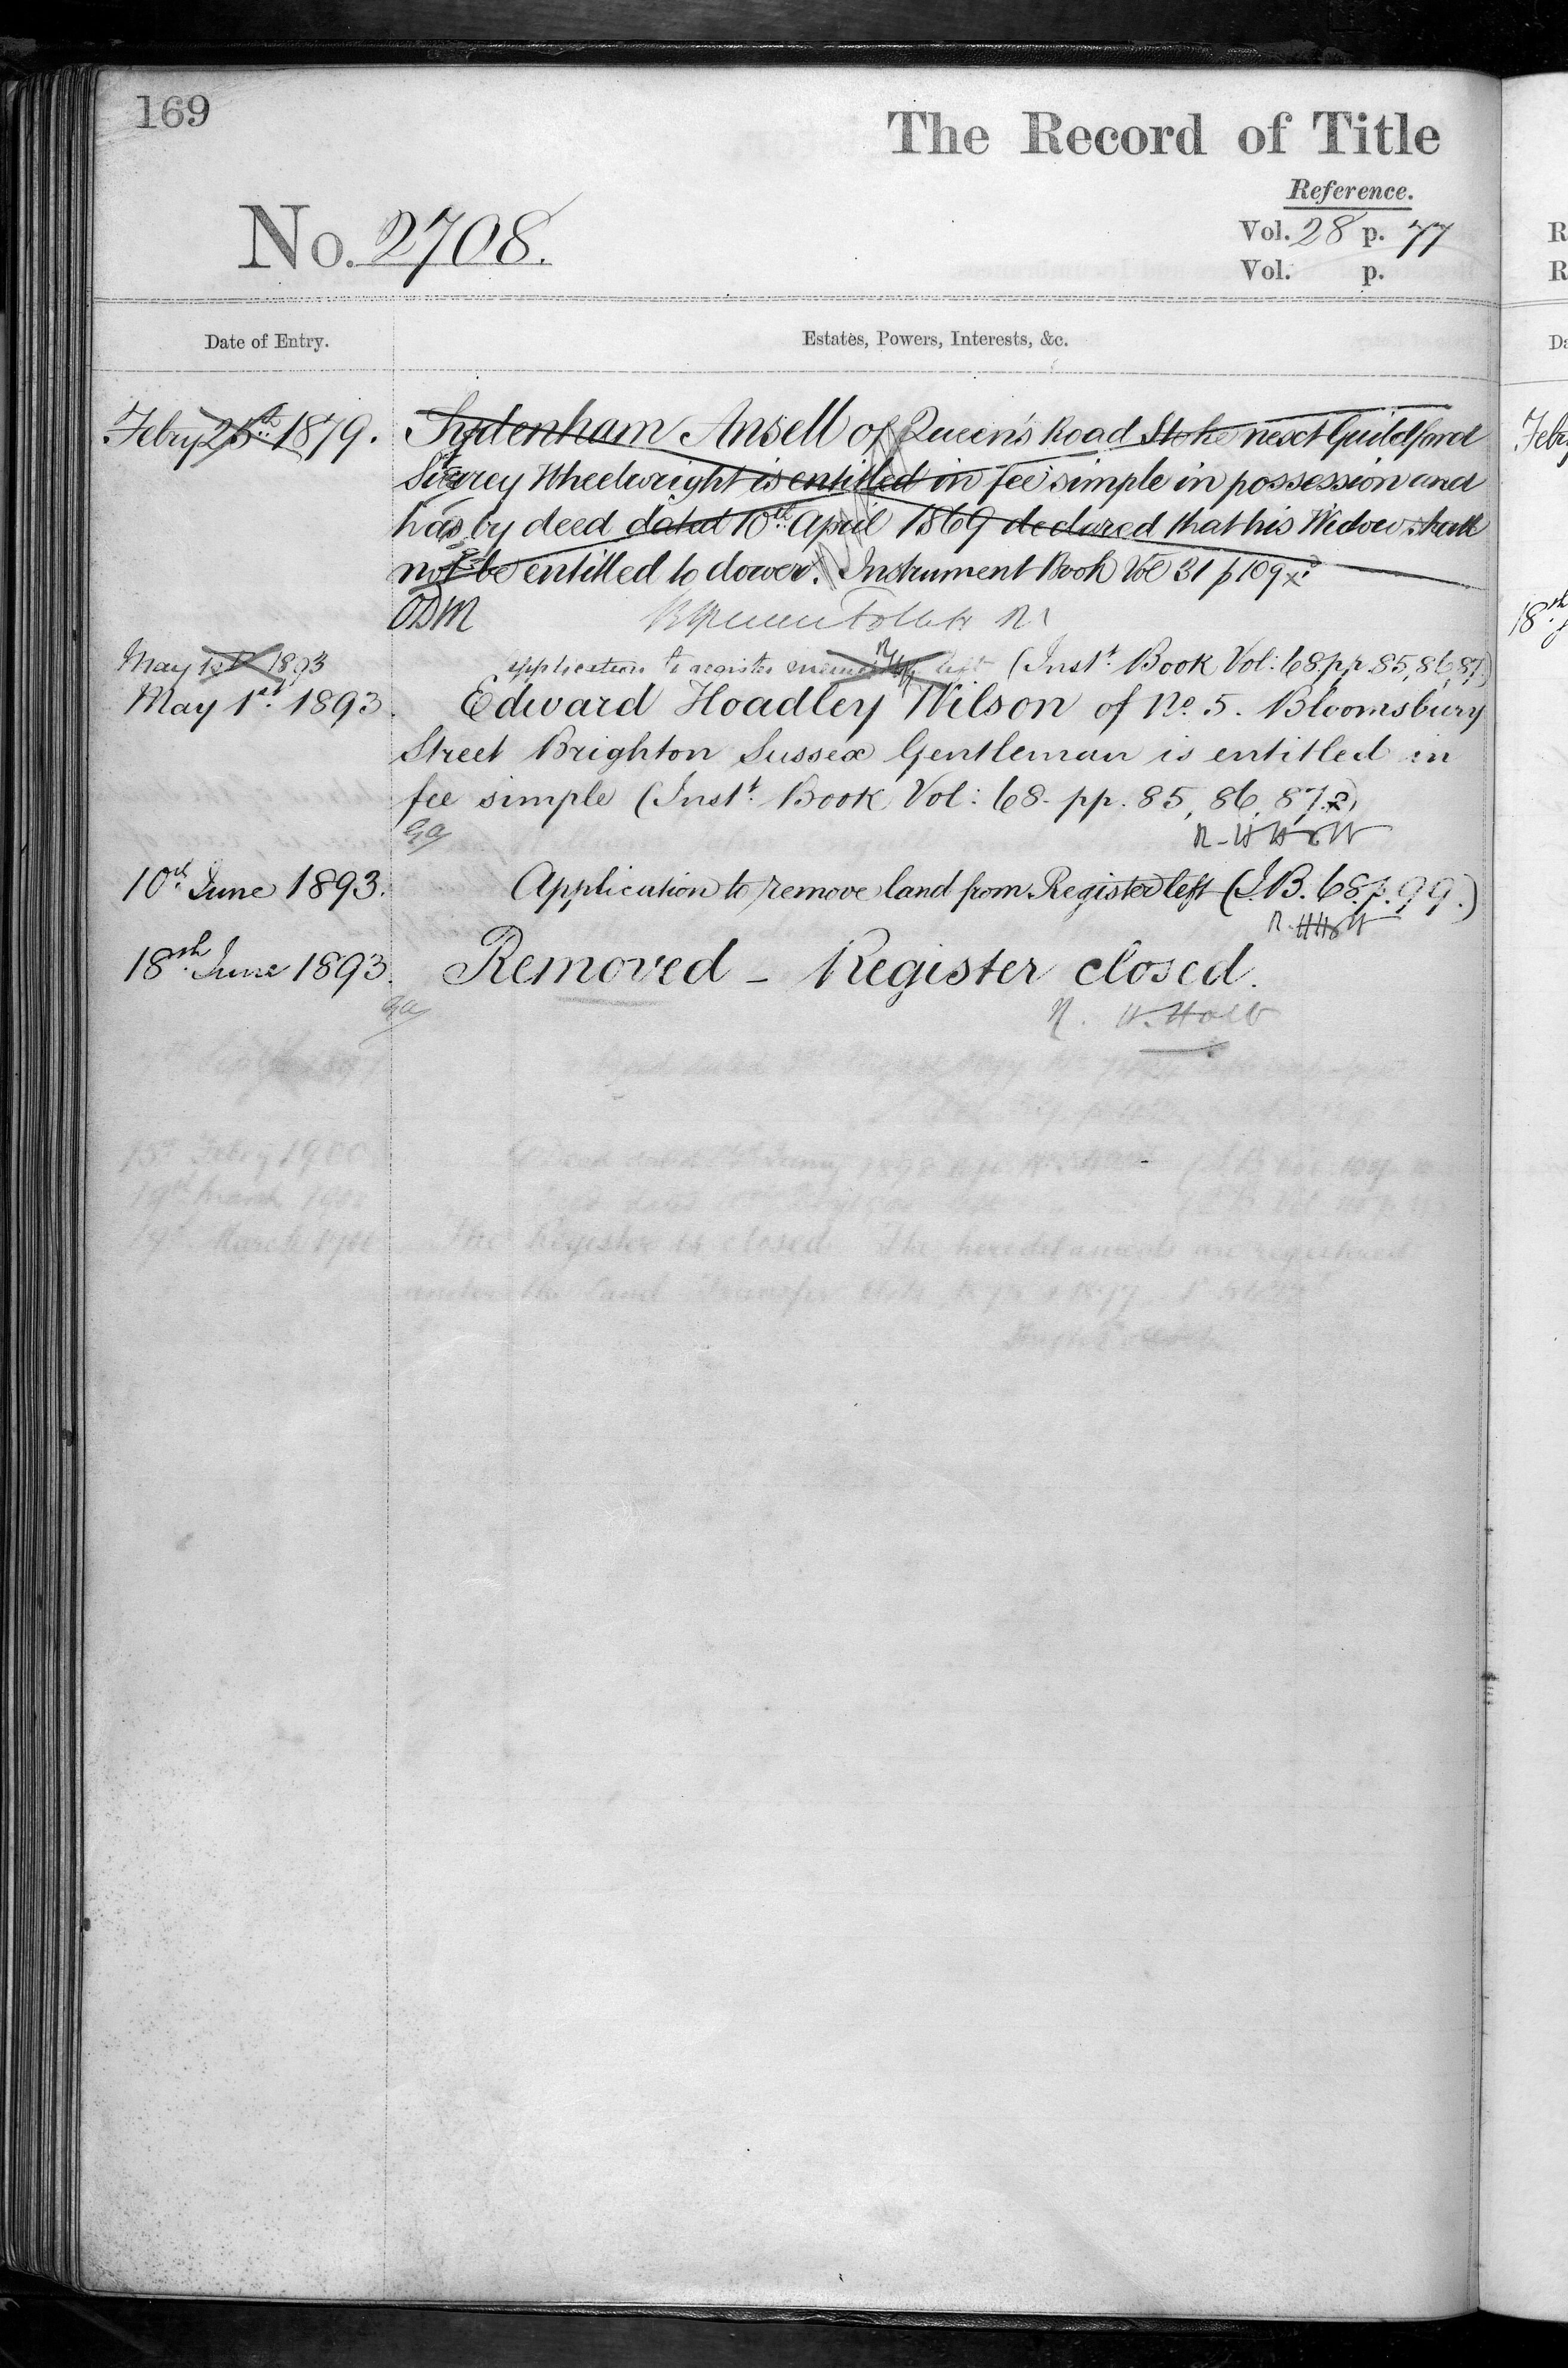 169
The Record of Title
Reference.
No. 2708.
Vol. 28 p. 77
Vol. p.
Date of Entry.
Estates, Powers, Interests, &c.
Febry 25th 1879. Sydenham Ansell of Queen's Road Stoke next Guildford
Surrey Wheelwright is entitled in fee simple in possession and
has by deed dated 10th April 1869 declared that his Widow shall
not be entitled to dower. Instrument Book Vol 31 p 109
ODM
May 1st 1893 Application to register left (Inst. Book Vol: 68 pp. 85, 86, 87)
May 1st 1893. Edward Hoadley Wilson of No. 5. Bloomsbury
Street Brighton Sussex Gentleman is entitled in
fee simple (Inst. Book Vol: 68 pp. 85, 86, 87.)
R. H Holt
10th June 1893. Application to remove land from Register left (I.B. 68. p. 99.)
R. H Holt
18th June 1893. Removed - Register closed.
R. H. Holt
The Register is closed. The hereditaments are registered
under the Land Transfer Acts